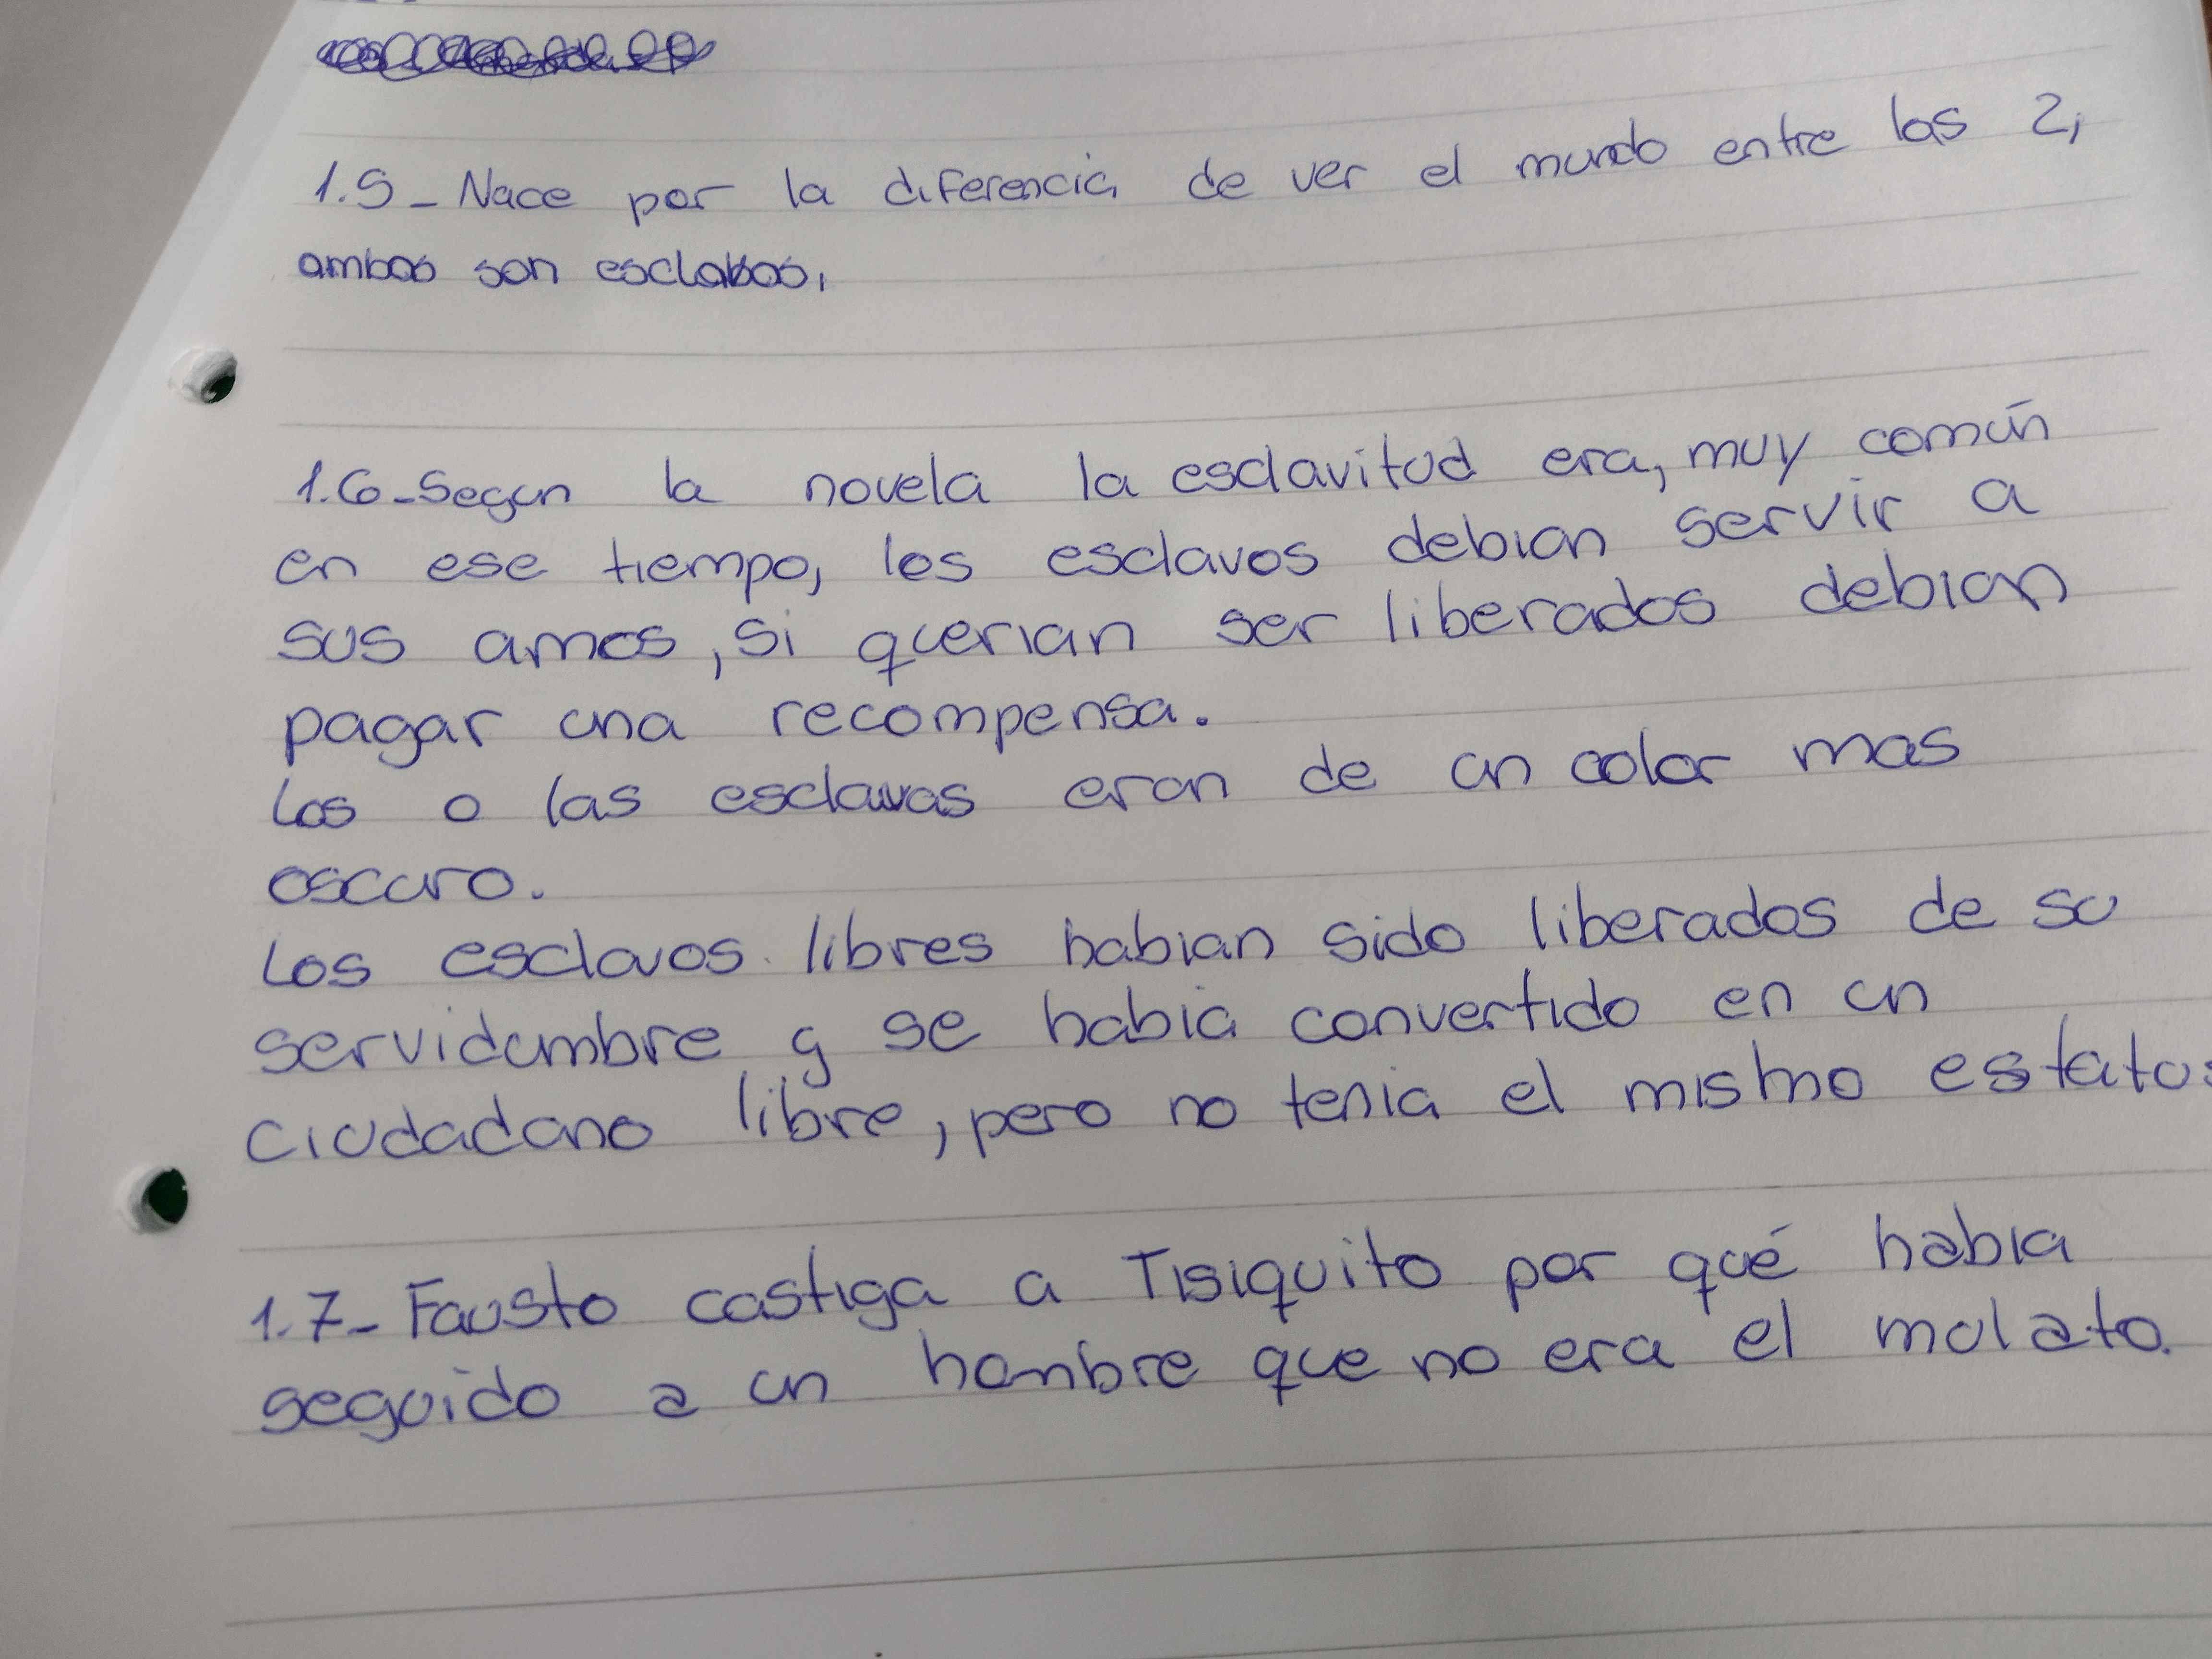 1.5_ Nace por la diferencia de ver el mundo entre los 2,
ambos son esclabos,
1.6_Segun la novela la esclavitud era, muy común
en ese tiempo, los esclavos debian servir a
sus amos, si querian ser liberados debian
pagar una recompensa.
Los o las esclavas eran de un color mas
oscuro.
Los esclavos libres habian sido liberados de su
servidumbre y se habia convertido en un
ciudadano libre, pero no tenia el mismo estatus
1.7_ Fausto castiga a Tisiquito por qué habia
seguido a un hombre que no era el mulato.